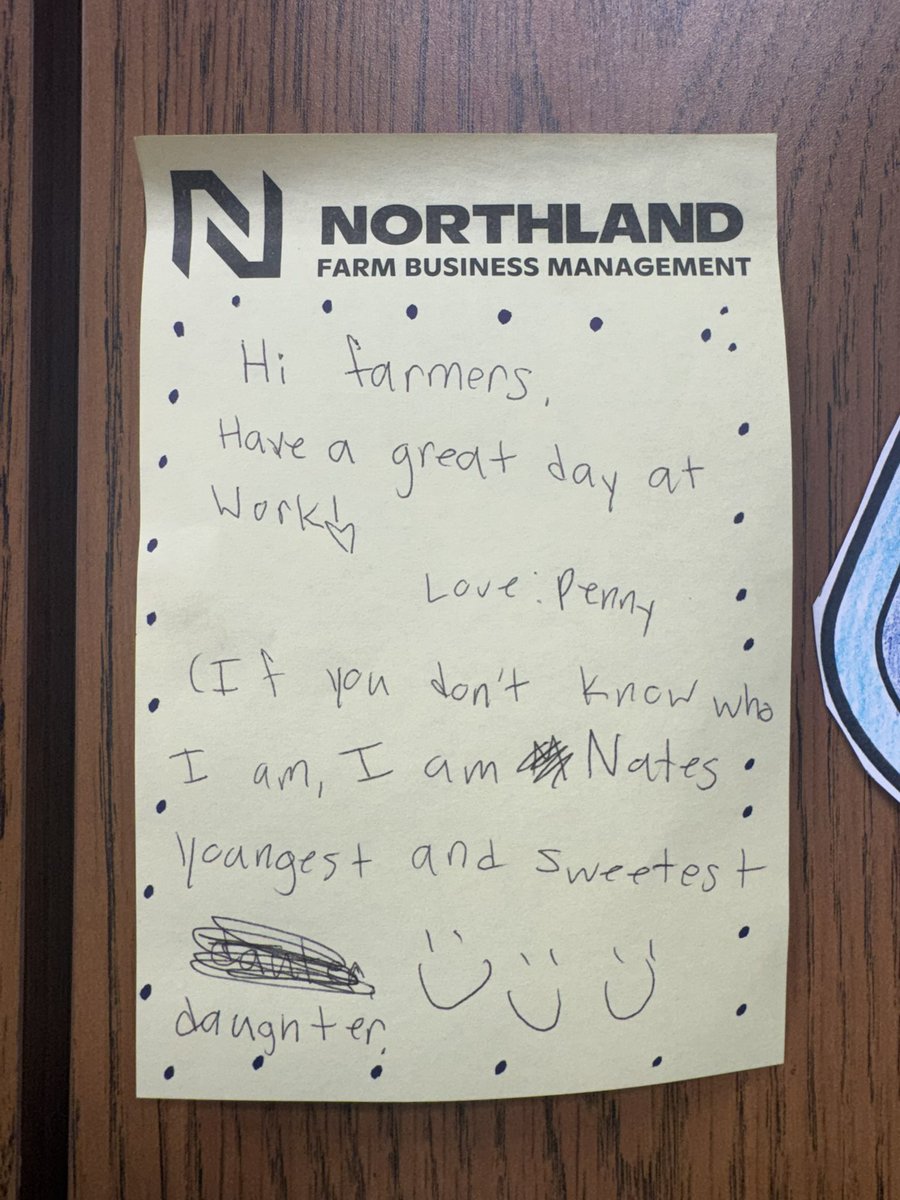 NORTHLAND
FARM BUSINESS MANAGEMENT
Hi farmers,
Have a great day at
Work!
Love: Penny
(If you don't know who
I am, I am Nates
youngest and sweetest
daughter.